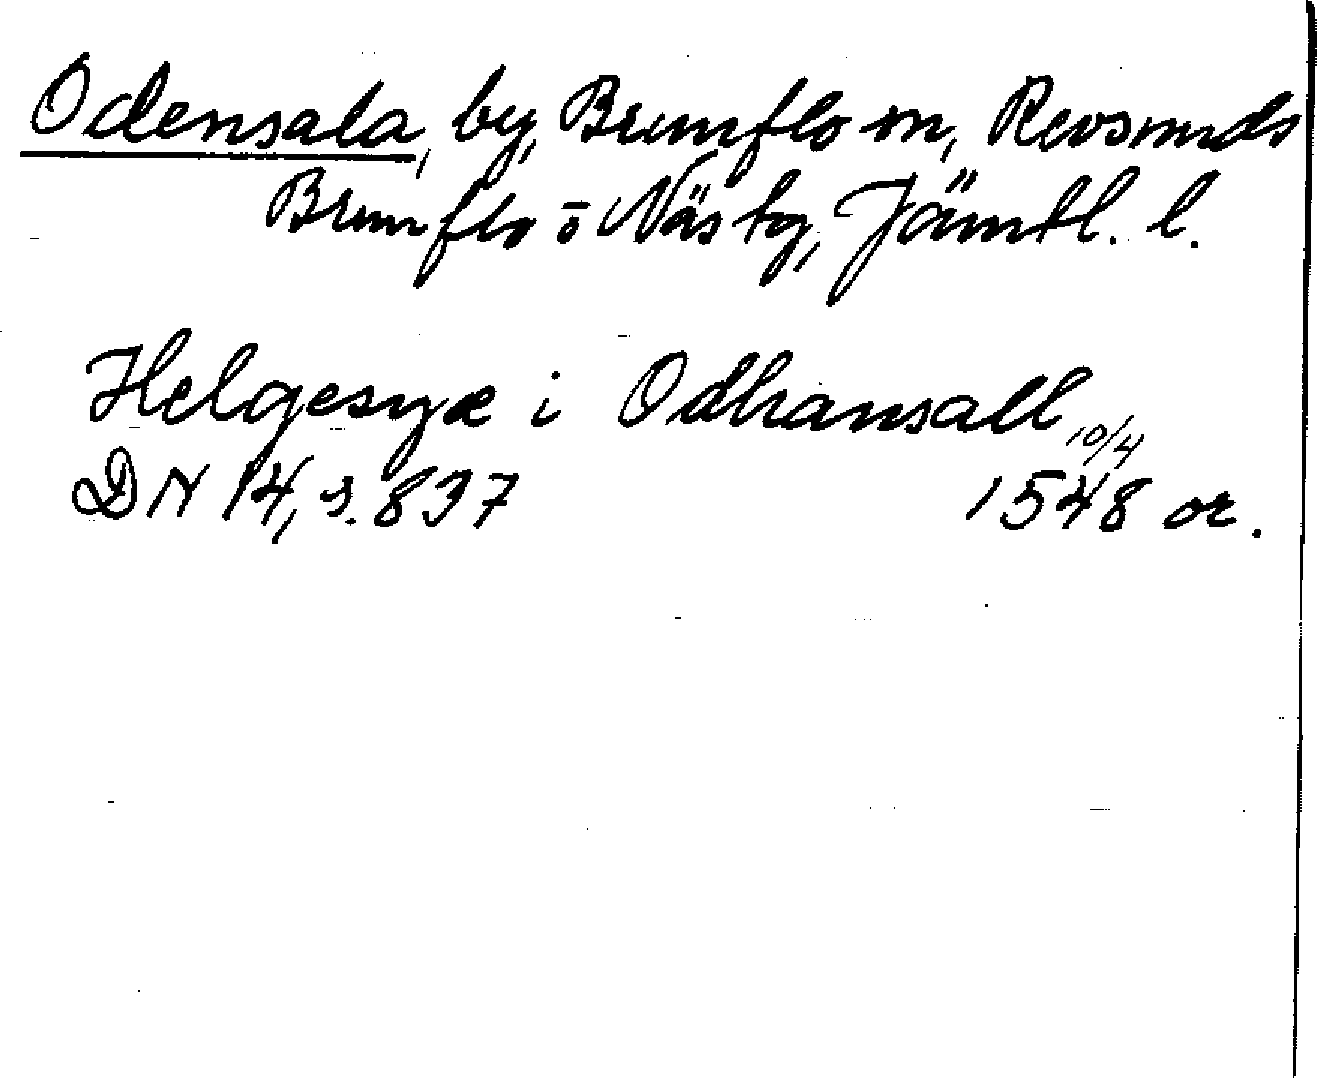 Odensala, by, Brunflo sn, Revsunds
Brunflo o Näs tg, Jämtl. l.
Helgesyæ i Odhansall 10/4
DN 14, s. 837 1548 or.